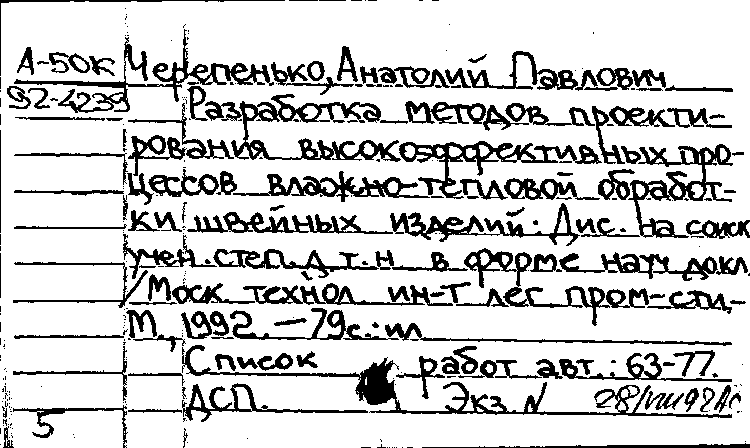 А-50к Черепенько, Анатолий Павлович
92-4239 Разработка методов проекти-
рования высокоэффективных про-
цессов влажно-тепловой обработ-
ки швейных изделий: Дис. на соиск
учен. степ. д. т. н в форме науч докл
/Моск. технол ин-т лег пром-сти,-
М., 1992. -79с.: ил
Список работ авт.: 63-77.
ДСП. Экз. N 28/VIII92
5